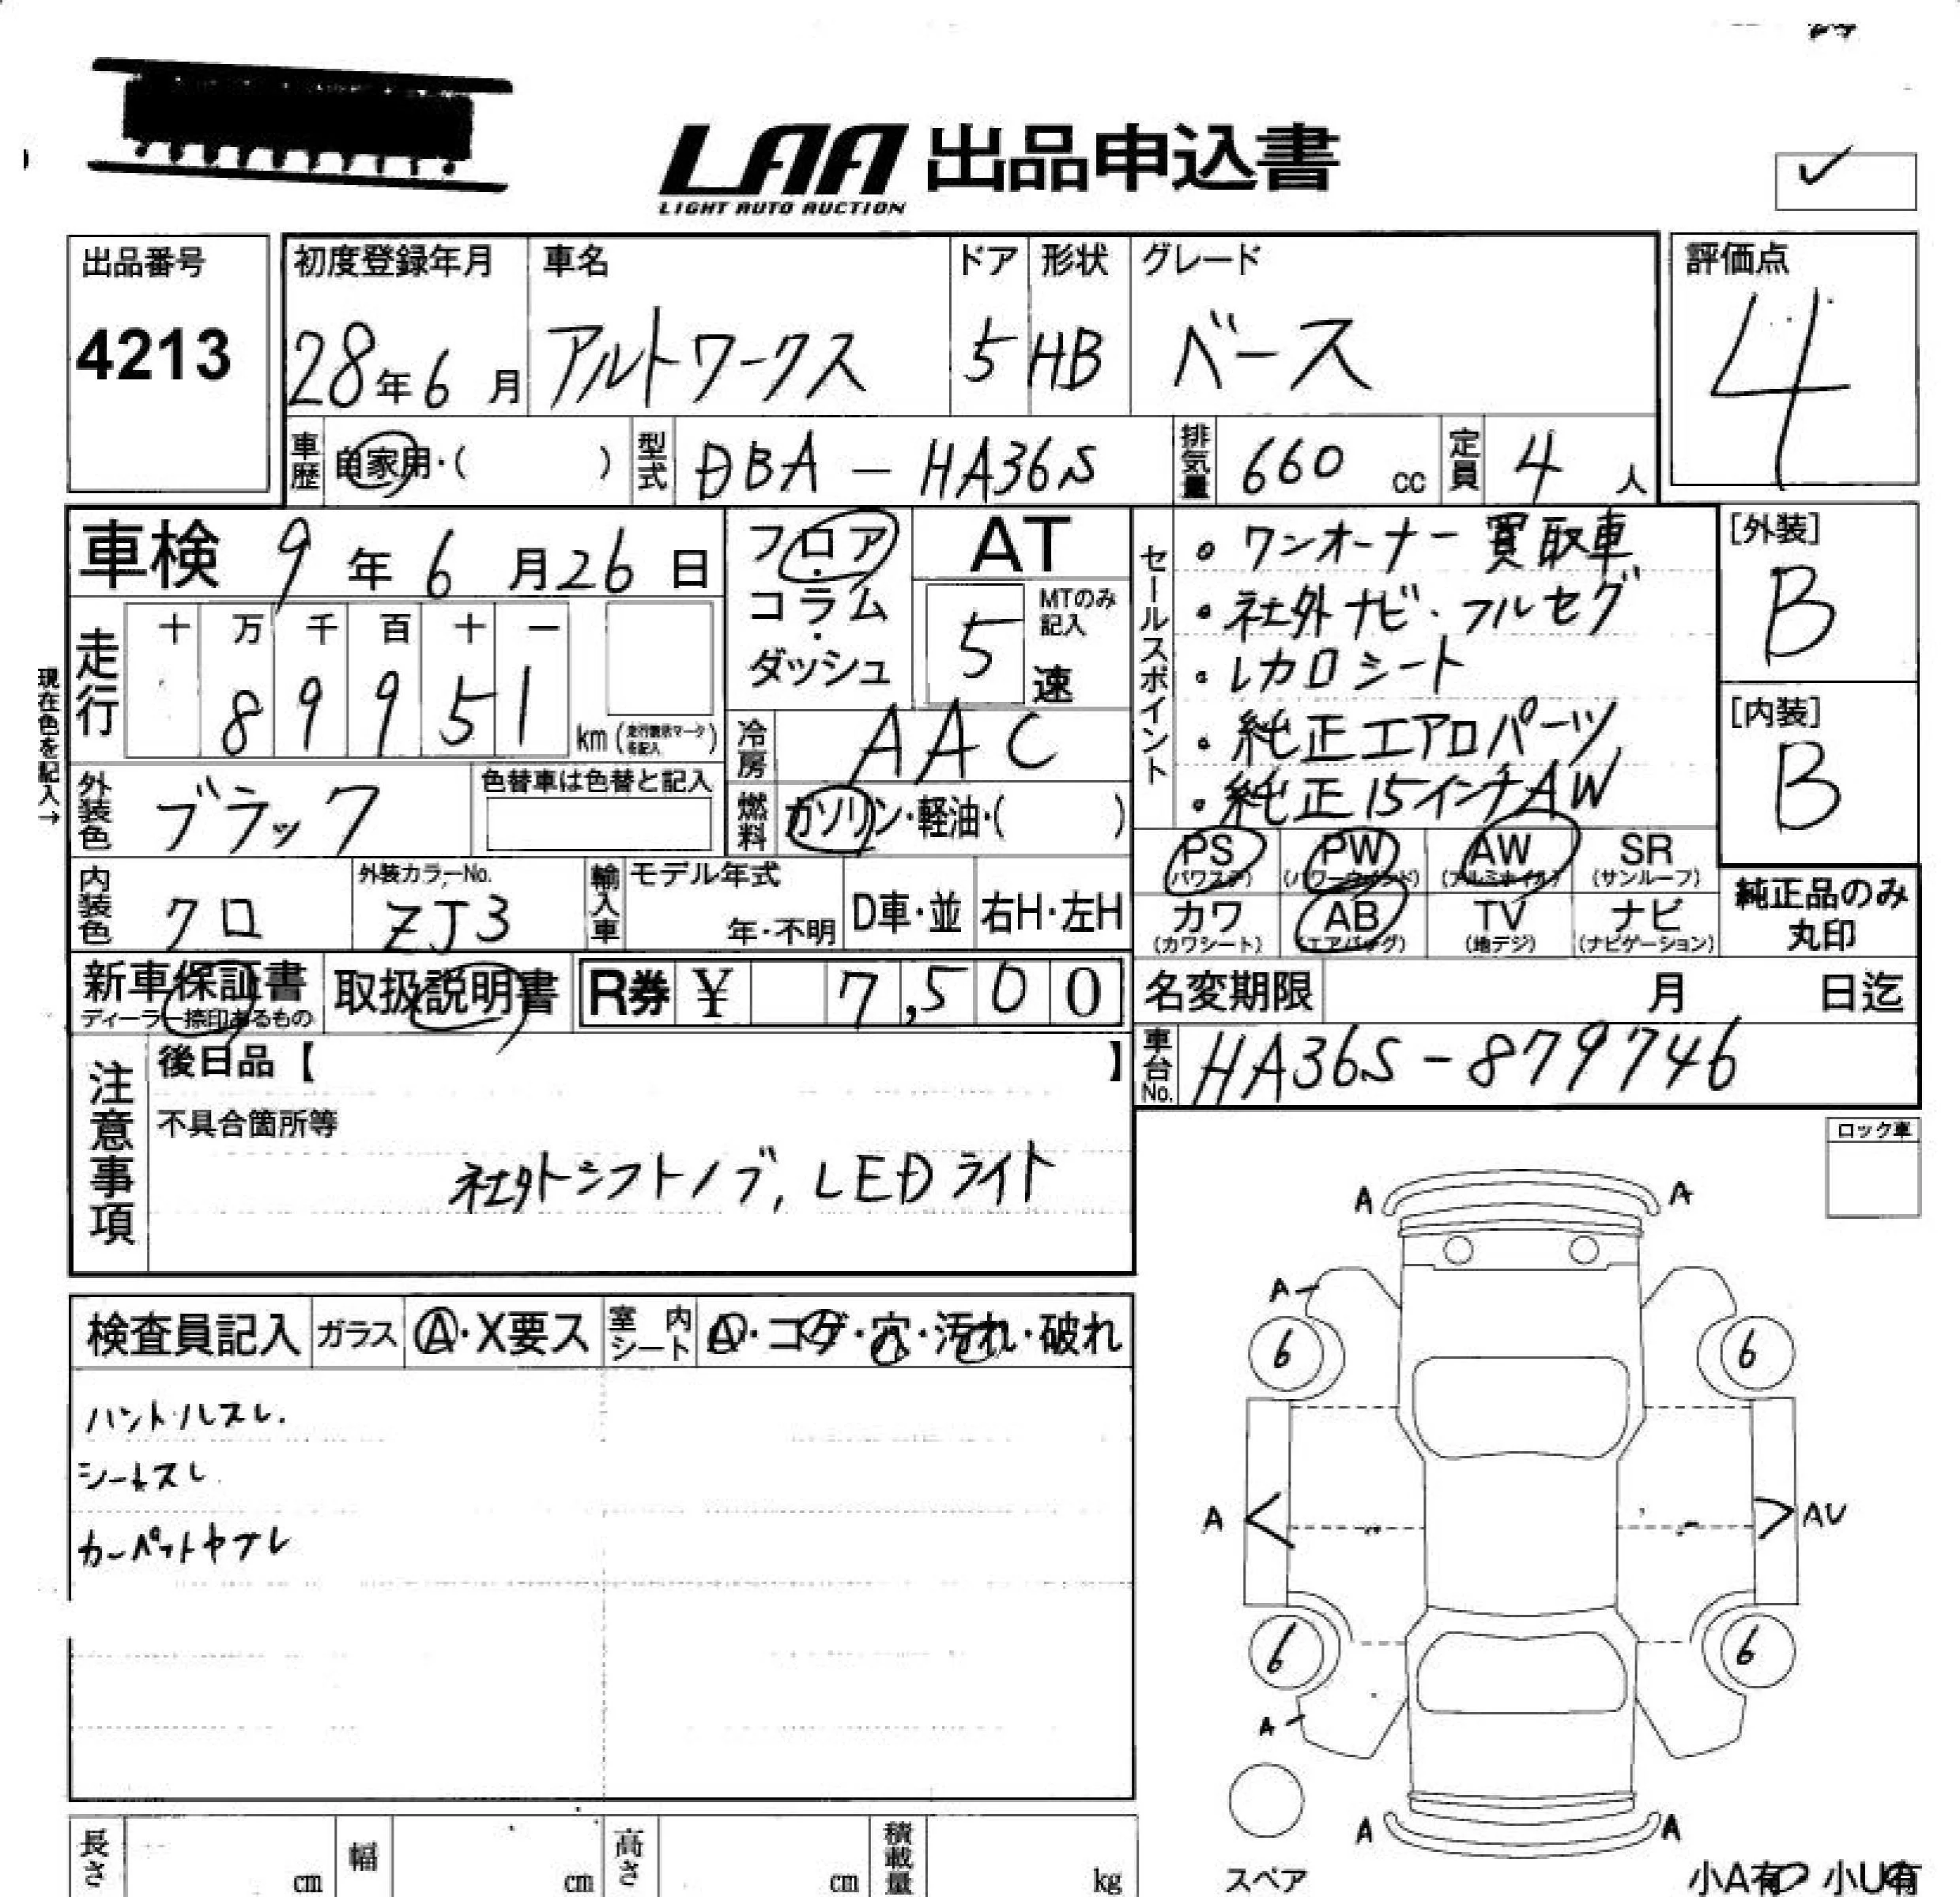 LAA 出品申込書
LIGHT AUTO AUCTION
出品番号 初度登録年月 車名 ドア 形状 グレード 評価点
4213 28年6月 アルトワークス 5 HB ベース 4
車歴 自家用・( ) 型式 DBA - HA36S 排気量 660 cc 定員 4 人
車検 9年6月26日 フロア・コラム・ダッシュ AT
5速 MTのみ記入
現在色を記入→
走行 十 万 千 百 十 一
8 9 9 5 1 km (走行表示マークを記入)
冷房 AAC
外装色 ブラック 色替車は色替と記入
燃料 ガソリン・軽油・( )
セールスポイント
・ワンオーナー買取車
・社外ナビ・フルセグ
・レカロシート
・純正エアロパーツ
・純正15インチAW
[外装]
B
[内装]
B
PS (パワステ) PW (パワーウィンド) AW (アルミホイル) SR (サンルーフ)
カワ (カワシート) AB (エアバッグ) TV (地デジ) ナビ (ナビゲーション)
純正品のみ
丸印
内装色 クロ 外装カラーNo. ZJ3 輸入車 モデル年式 年・不明 D車・並 右H・左H
新車保証書 取扱説明書 R券 ¥ 7,500 名変期限 月 日迄
ディーラー捺印あるもの
車台No. HA36S-879746
注意事項
後日品【 】
不具合箇所等
社外シフトノブ, LEDライト
ロック車
検査員記入 ガラス A・X要ス 室内シート A・コゲ・穴・汚れ・破れ
ハンドルスレ.
シートスレ
カーペットヤブレ
A A
A
6 6
A AU
6 6
A
A A
スペア
小A有 小U有
長さ cm 幅 cm 高さ cm 積載量 kg